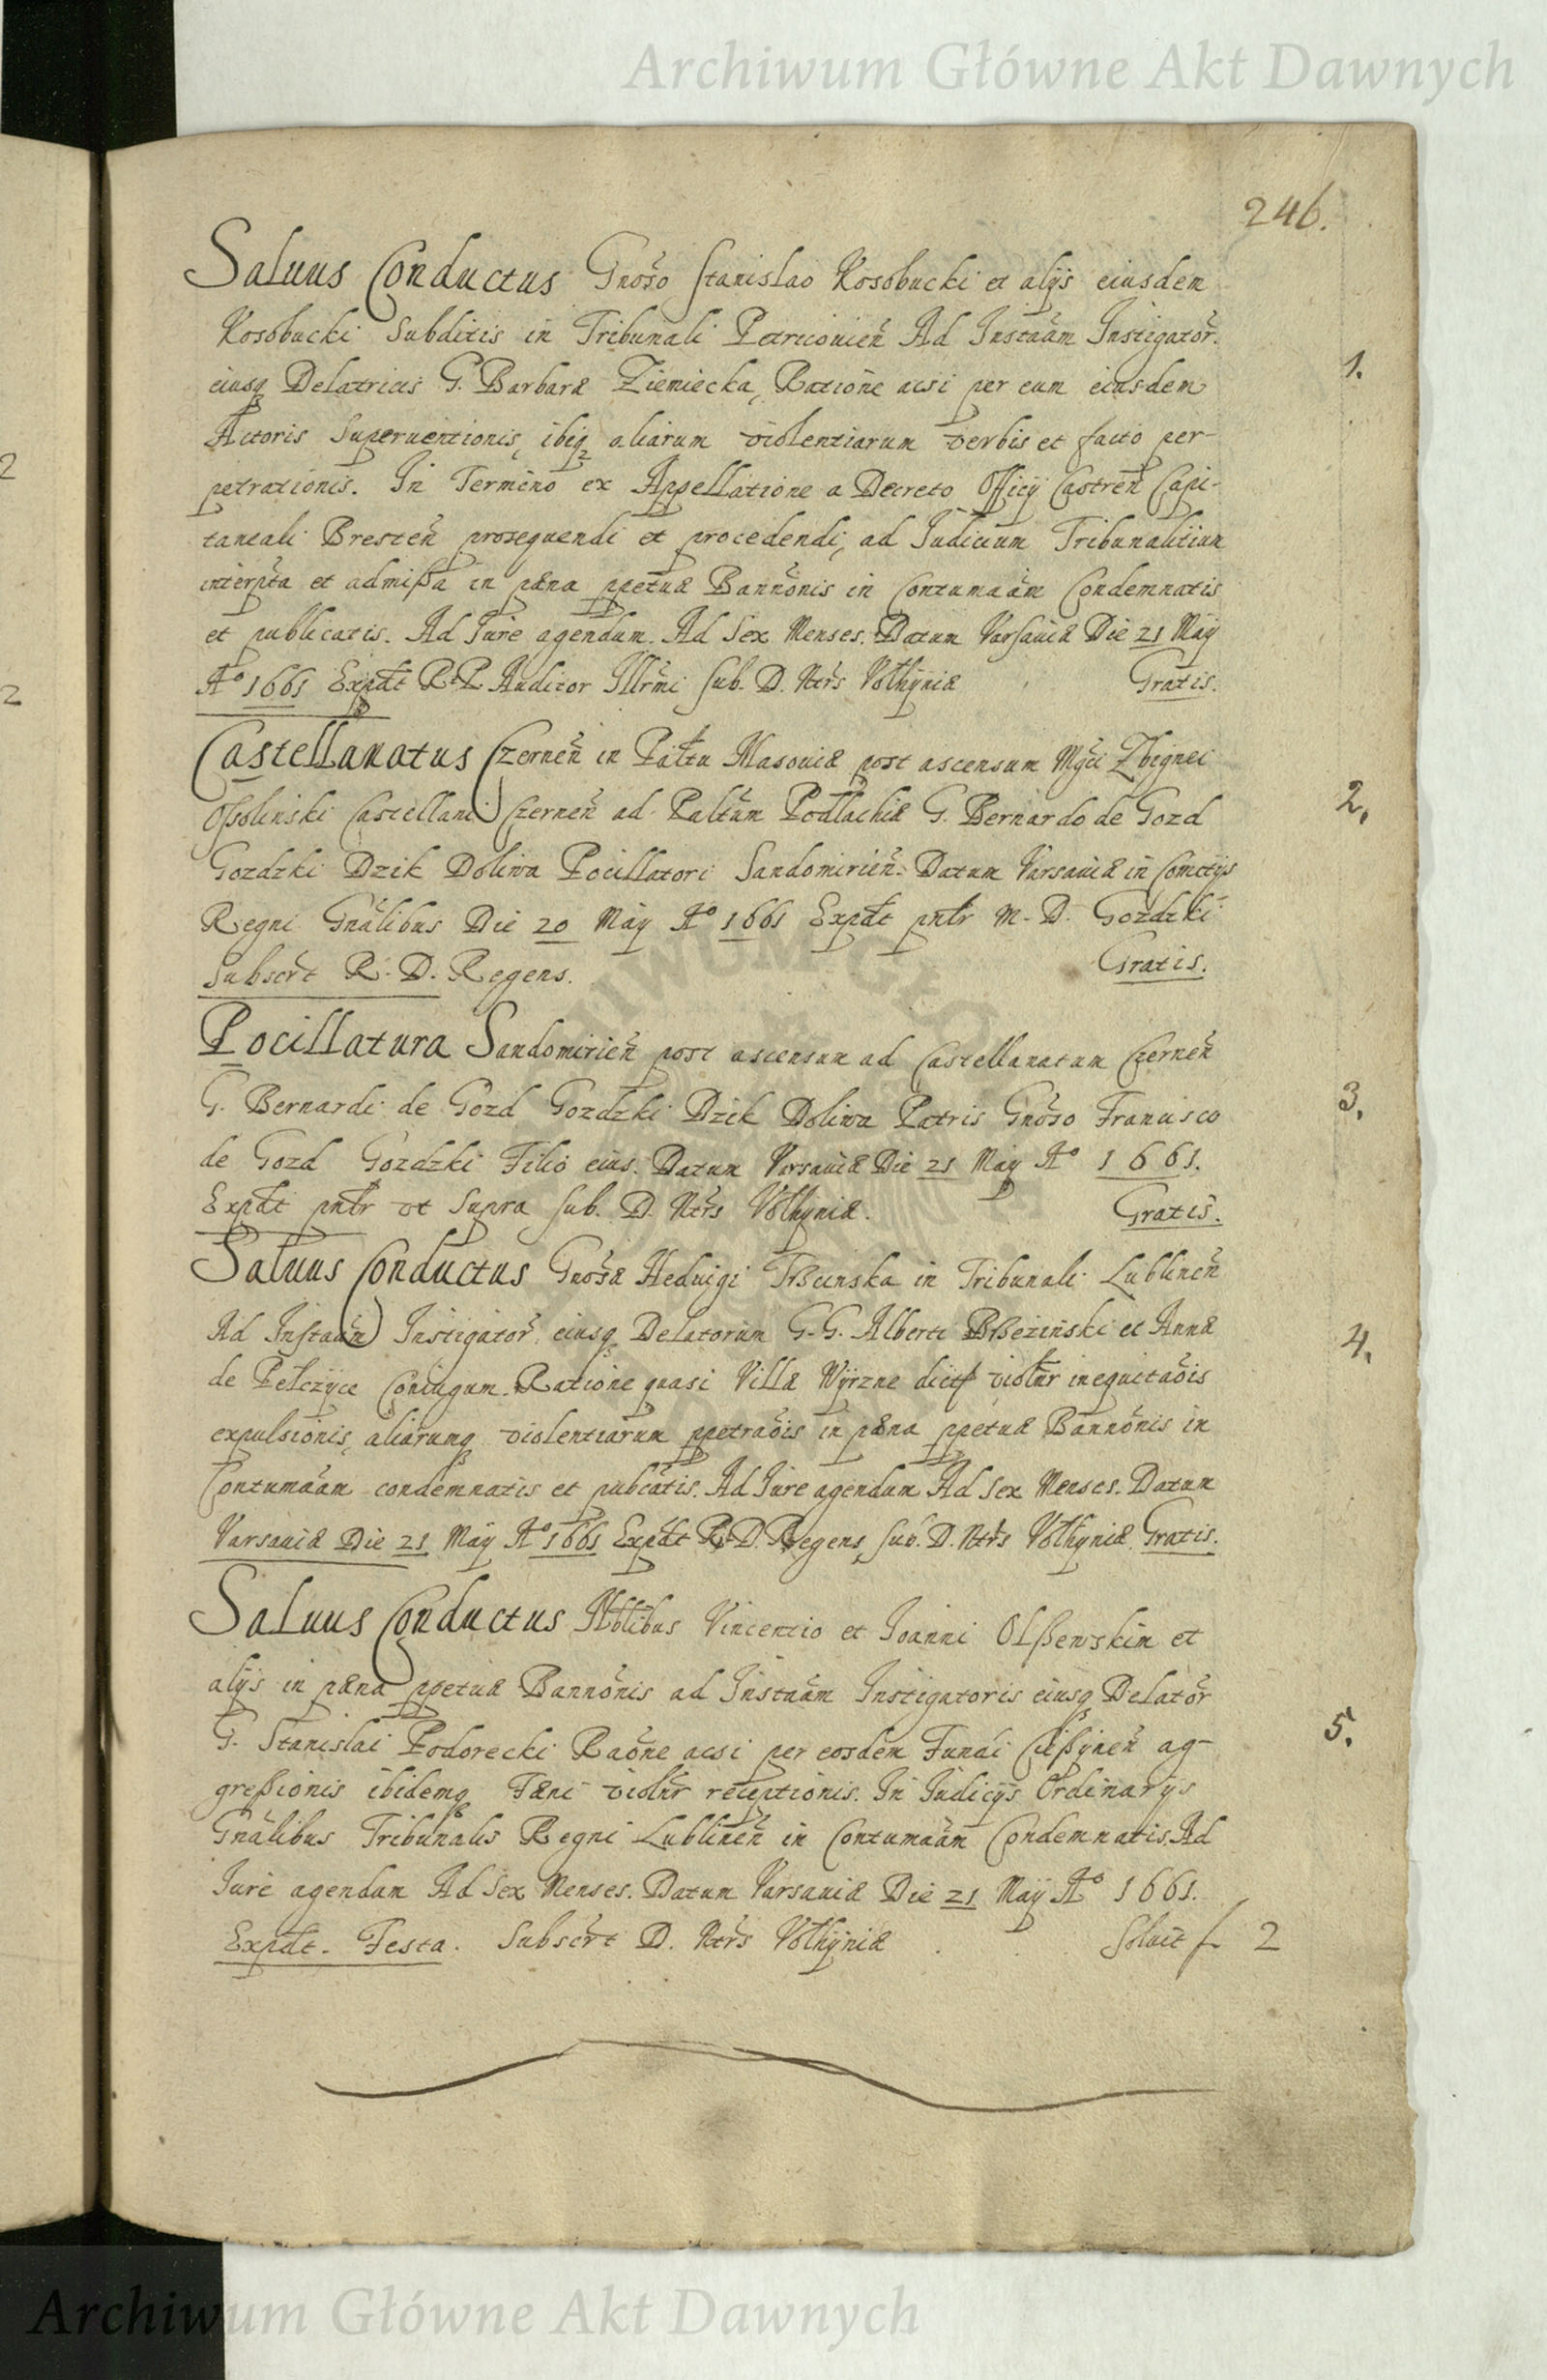 Archiwum Główne Akt Dawnych
246.
Saluus Conductus Gnoso Stanislao Kosobucki et alijs eiusdem
Kosobucki Subditis in Tribunali Petricouien Ad Instaam Instigator.
eiusq Delatricis G. Barbaræ Ziemiecka, Ratione acsi per eum eiusdem
Actoris Superuentionis, ibiq aliarum violentiarum verbis et facto per-
petrationis. In Termino ex Appellatione a Decreto Officij Castren Capi-
taneali Bresten prosequendi et procedendi, ad Iudicium Tribunalitium
interpta et admißa in pæna ppetuæ Bannonis in Contumaam Condemnatis
et publicatis. Ad Iure agendum. Ad Sex Menses. Datum Varsauiæ Die 21 Maij
Aº 1661 Expdt R. P. Auditor Illrmi Sub. D. Ntrs Volhyniæ Gratis.
1.
Castellanatus Czernen in Paltu Masouiæ post ascensum Mgci Zbignei
Oßolinski Castellani Czernen ad Paltum Podlachiæ G. Bernardo de Gozd
Gozdzki Dzik Doliwa Pocillatori Sandomirien. Datum Varsauiæ in Comitijs
Regni Gnalibus Die 20 Maij Aº 1661 Expdt pntr M. D. Gozdzki
Subscrt R. D. Regens. Gratis.
2.
Pocillatura Sandomirien post ascensum ad Castellanatum Czernen
G. Bernardi de Gozd Gozdzki Dzik Doliwa Patris Gnoso Francisco
de Gozd Gozdzki Filio eius. Datum Varsauiæ Die 21 Maij Aº 1661.
Expdt pntr vt Supra Sub. D. Ntrs Volhyniæ. Gratis.
3.
Saluus Conductus Gnosæ Heduigi Trzcinska in Tribunali Lublinen
Ad Instaam Instigator eiusq Delatorum G. G. Alberti Brzezinski et Annæ
de Pełczyce Coniugum. Ratione quasi Villæ Wyrzne dict violntr inequitaois
expulsionis, aliarumq violentiarum ppetraois in pæna ppetuæ Bannonis in
Contumaam condemnatis et publcatis. Ad Iure agendum Ad Sex Menses. Datum
Varsauiæ Die 21 Maij Aº 1661 Expdt R. D. Regens, Sub. D. Ntrs Volhyniæ Gratis.
4.
Saluus Conductus Nblibus Vincentio et Ioanni Olßewskim et
alijs in pæna ppetuæ Bannonis ad Instaam Instigatoris eiusq Delator
G. Stanislai Podorecki Raone acsi per eosdem Fundi Cießynen ag-
greßionis ibidemq Fæni violntr receptionis. In Iudicijs Ordinarijs
Gnalibus Tribunalis Regni Lublinen in Contumaam Condemnatis. Ad
Iure agendum Ad Sex Menses. Datum Varsauiæ Die 21 Maij Aº 1661.
Expdt. Testa. Subscrt D. Ntrs Volhyniæ Soluit f. 2
5.
Archiwum Główne Akt Dawnych